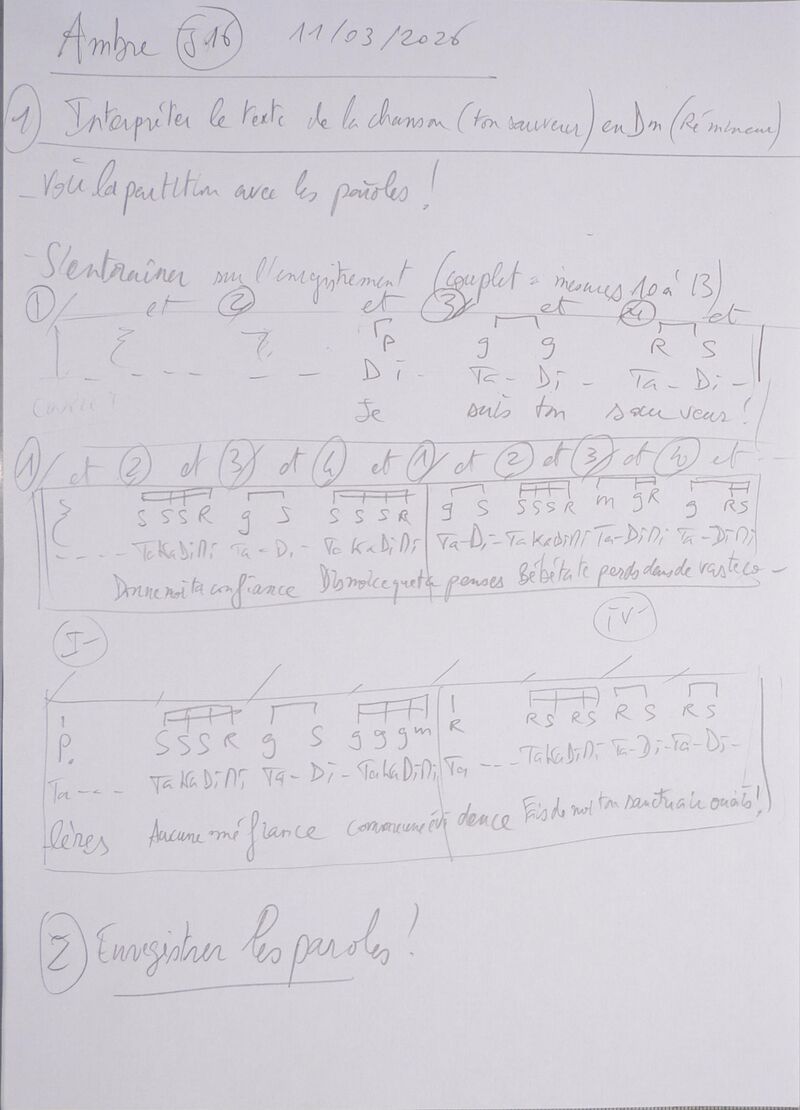 Ambre J16 11/03/2026
1 Interpréter le texte de la chanson (ton sauveur) en Dm (Ré mineur)
- Voir la partition avec les paroles !
- S'entraîner sur l'enregistrement (couplet = mesures 10 à 13)
1 et 2 et 3 et 4 et
P g g R S
Di - Ta - Di - Ta - Di -
Je suis ton sauveur !
1 et 2 et 3 et 4 et 1 et 2 et 3 et 4 et
S S S R g S S S S R g S S S S R m g R g R S
TaKaDiMi Ta - Di - TaKaDiMi Ta - Di - TaKaDiMi Ta - DiMi Ta - DiMi
Donne moi ta confiance Dis moi ce que ta penses Bébé ta te perds dans de vastes co -
I - IV -
P. S S S R g S g g g m R R S R S R S R S
Ta - - - TaKaDiMi Ta - Di - TaKaDiMi Ta - - - TaKaDiMi Ta - Di - Ta - Di -
lères Aucune méfiance comme une évidence Fais de moi ton sanctuaire ouais !
2 Enregistrer les paroles !